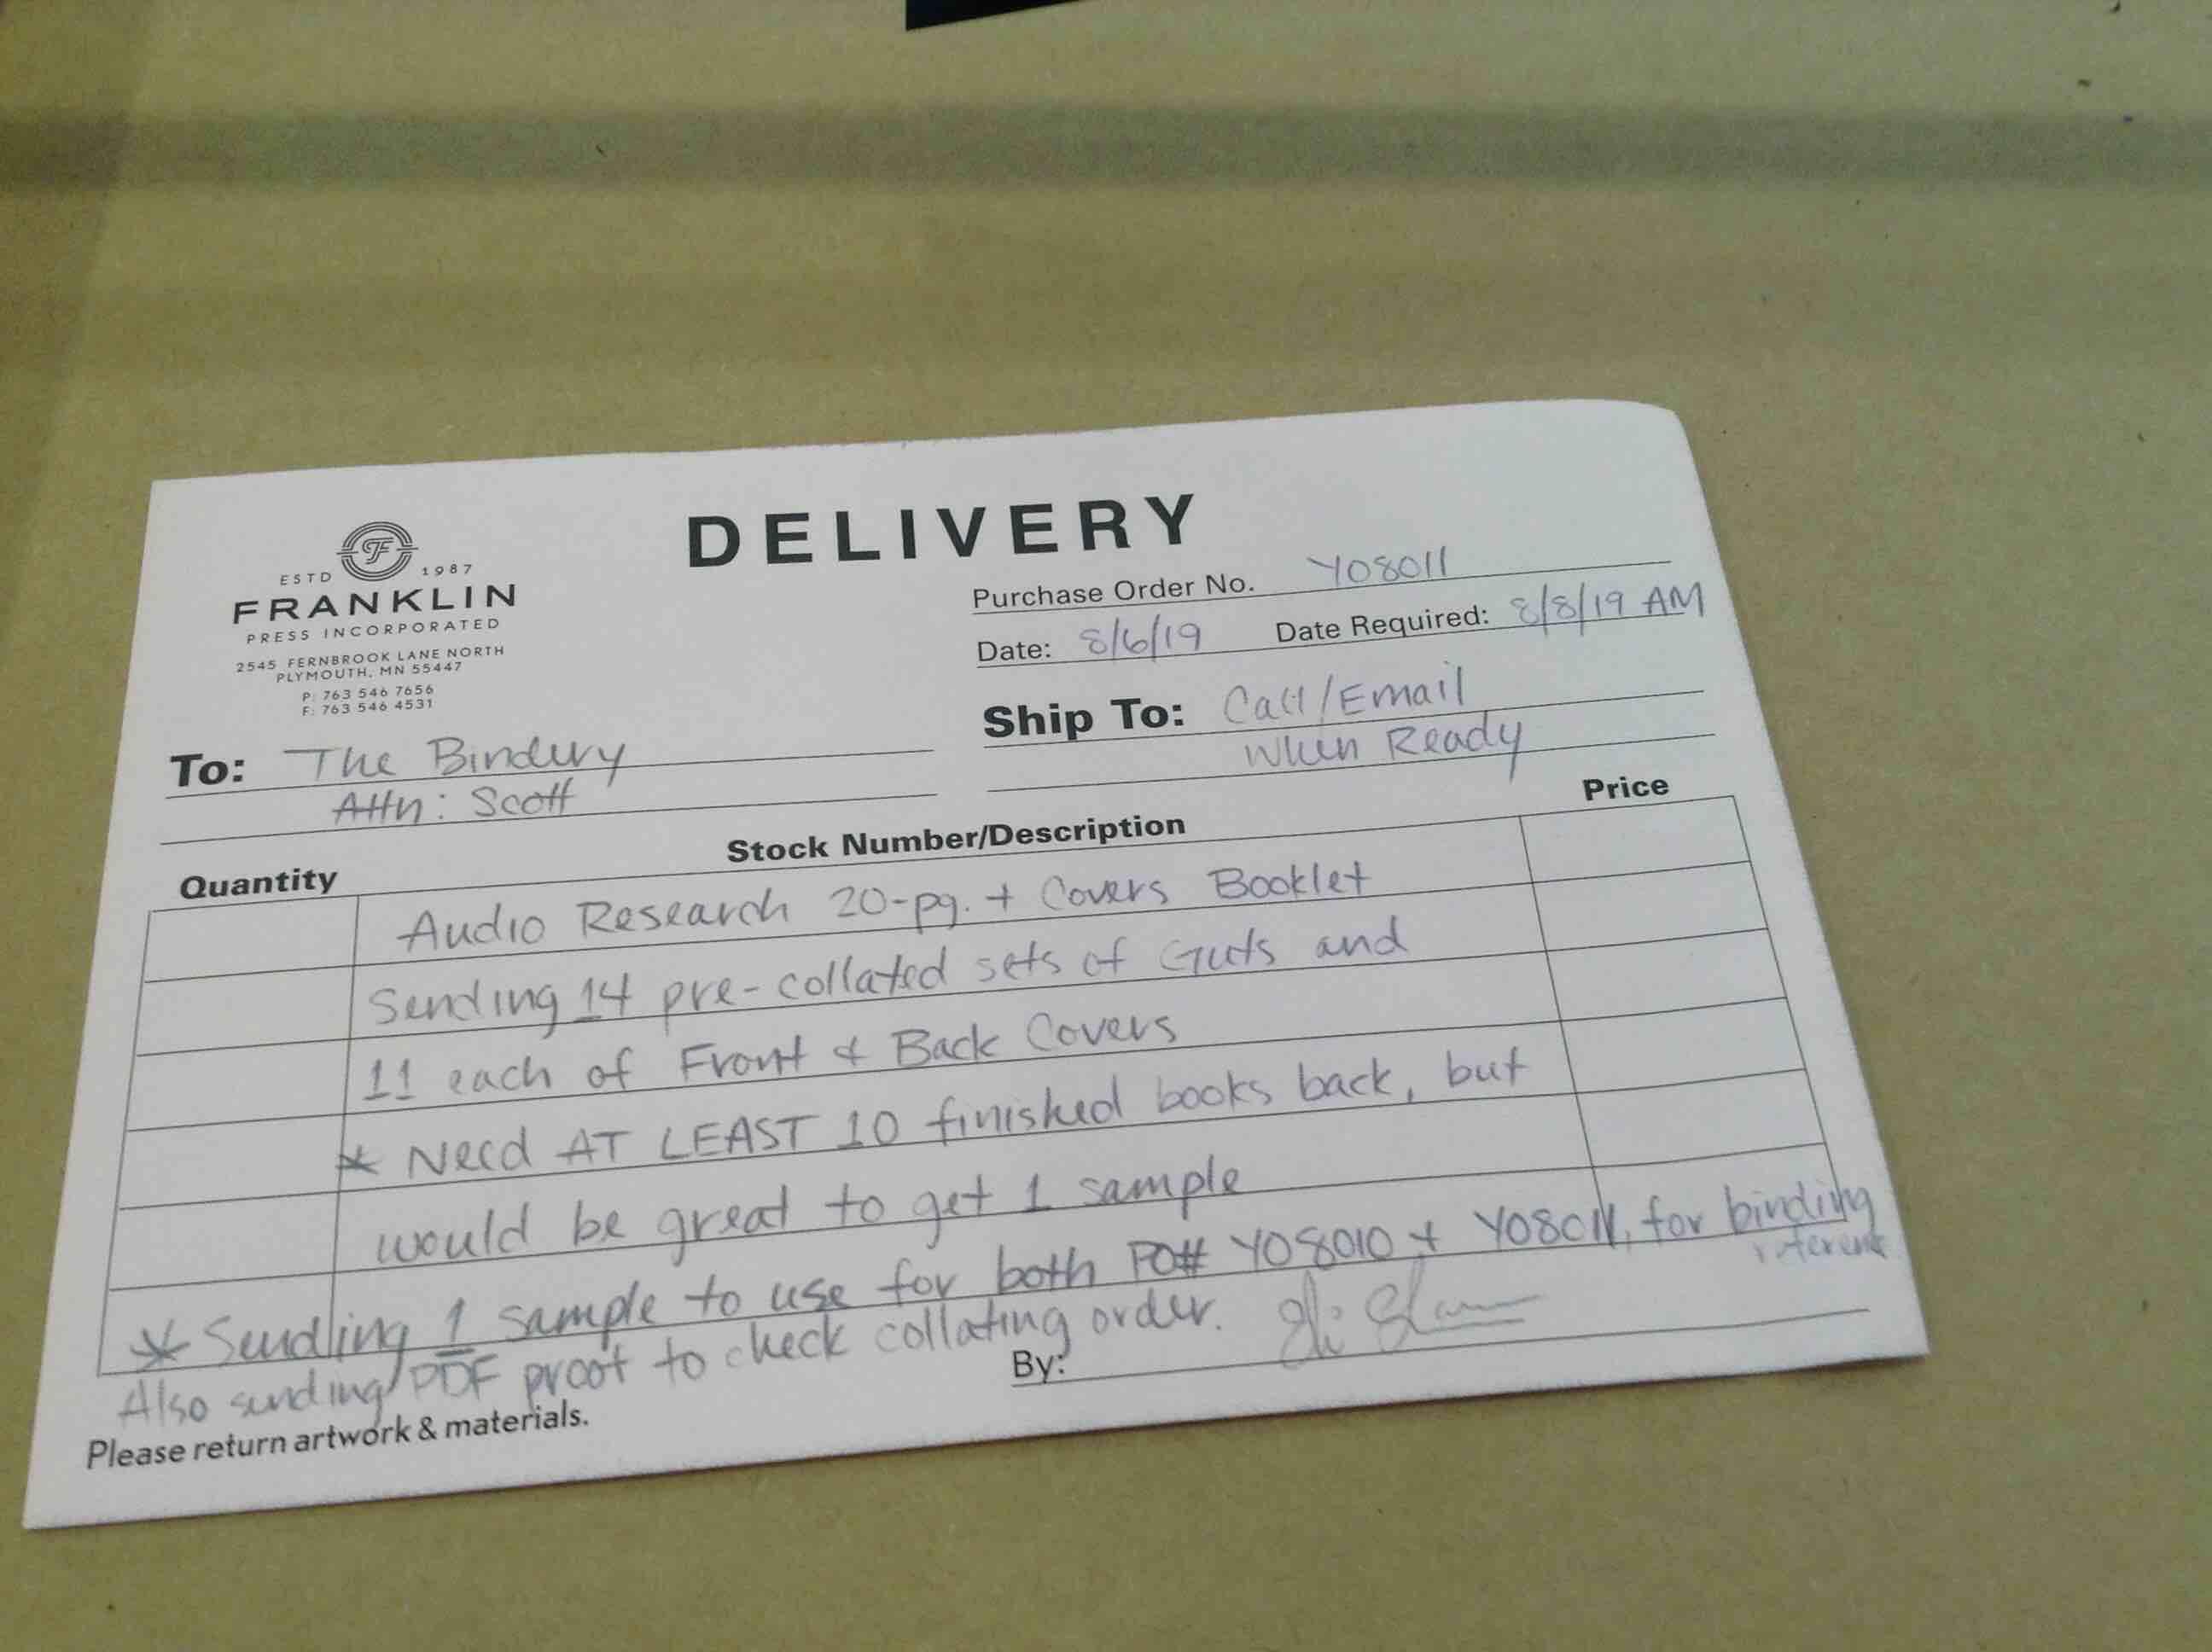 DELIVERY
ESTD 1987
FRANKLIN
PRESS INCORPORATED
2545 FERNBROOK LANE NORTH
PLYMOUTH, MN 55447
P: 763 546 7656
F: 763 546 4531
Purchase Order No. Y08011
Date: 8/6/19 Date Required: 8/8/19 AM
Ship To: Call/Email
When Ready
To: The Bindery
Attn: Scott
Quantity Stock Number/Description Price
Audio Research 20-pg. + Covers Booklet
Sending 14 pre-collated sets of Guts and
11 each of Front & Back Covers
* Need AT LEAST 10 finished books back, but
would be great to get 1 sample
* Sending 1 sample to use for both PO# Y08010 + Y08011, for binding
reference
Also sending PDF proof to check collating order.
By:
Please return artwork & materials.